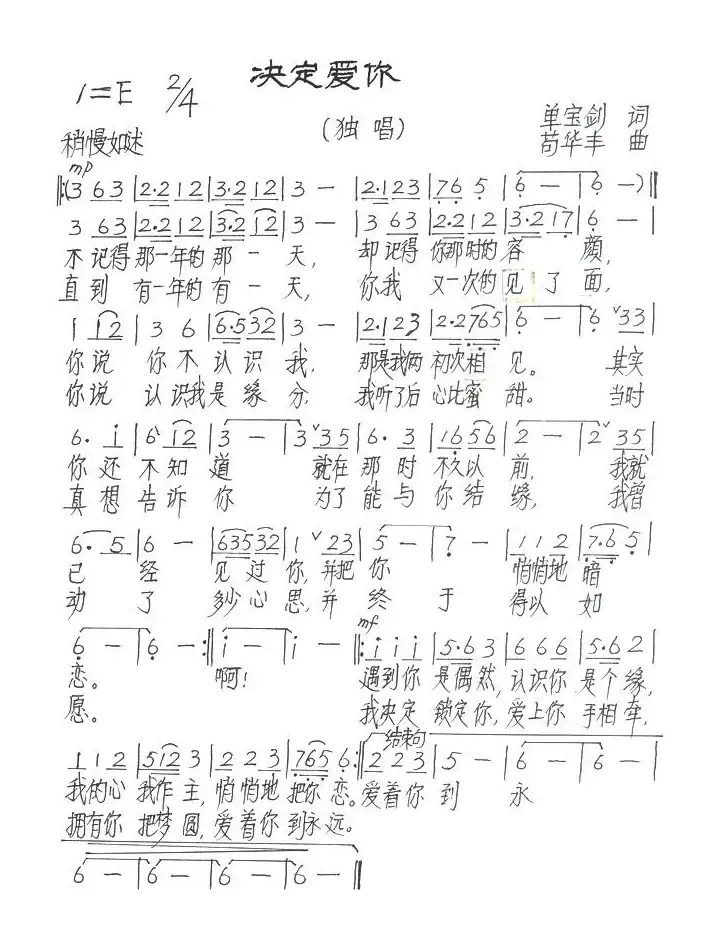 决定爱你
1=E 2/4
(独唱)
单宝剑 词
苟华丰 曲
稍慢如述
mp
‖:(3 63|2·2 12|3·2 12|3 — |2·1 23|76 5|6 — |6 — )‖
3 63|2·2 12|3·2 12|3 — |3 63|2·2 12|3·2 17|6 — |
不记得那一年的那一天, 却记得你那时的容颜,
直到有一年的有一天, 你我又一次的见了面,
1 12|3 6|6·5 32|3 — |2·1 23|2·2 765|6 — |6 ˅33|
你说你不认识我, 那是我俩初次相见。 其实
你说认识我是缘分; 我听了后心比蜜甜。 当时
6· i|6 i2|3 — |3 ˅35|6· 3|16 56|2 — |2 ˅35|
你还不知道 就在那时不久以前, 我就
真想告诉你 为了能与你结缘, 我曾
6· 5|6 — |635 32|1 ˅23|5 — |7 — |11 2|7·6 5|
已经见过你,并把你 悄悄地暗
动了多少心思,并终于 得以如
mf
6 — |6 — :‖i — |i — ‖:i i i|5·6 3|6 6 6|5·6 2|
恋。 啊! 遇到你是偶然,认识你是个缘,
愿。 我决定锁定你,爱上你手相牵,
结束句
1 1 2|512 3|2 2 3|765 6:‖2 2 3|5 — |6 — |6 — |
我的心我作主,悄悄地把你恋。爱着你到永
拥有你把梦圆,爱着你到永远。
6 — |6 — |6 — |6 — ‖